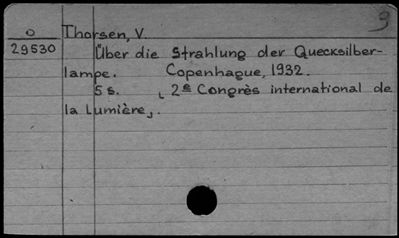 9
O Thorsen, V.
29530 Über die Strahlung der Quecksilber-
lampe. Copenhague, 1932.
5 s. [2e Congrès international de
la Lumière].